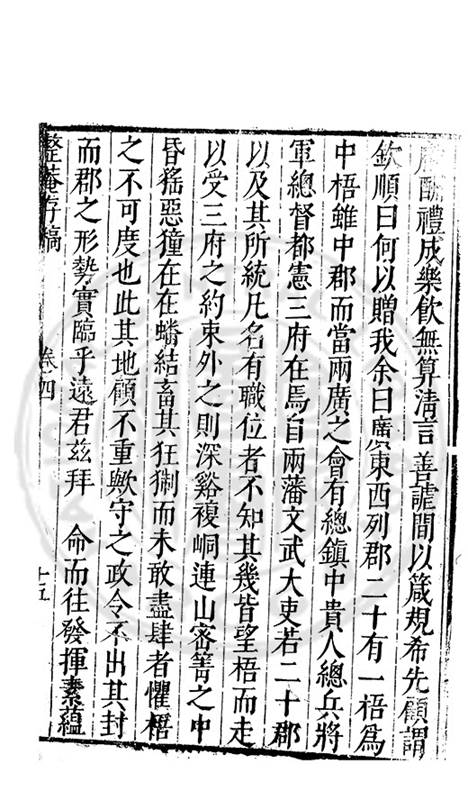 酬禮成樂飲無算清言善謔間以箴規希先顧謂
欽順曰何以贈我余曰廣東西列郡二十有一梧為
中梧雖中郡而當兩廣之會有總鎮中貴人總兵將
軍總督都憲三府在焉自兩藩文武大吏若二十郡
以及其所統凡名有職位者不知其幾皆望梧而走
以受三府之約束外之則深谿複峒連山密箐之中
昏猺惡獞在在蟠結畜其狂猘而未敢盡肆者懼梧
之不可度也此其地顧不重歟守之政令不出其封
而郡之形勢實臨乎遠君茲拜 命而往發揮素蘊
整菴存稿 卷四 十五